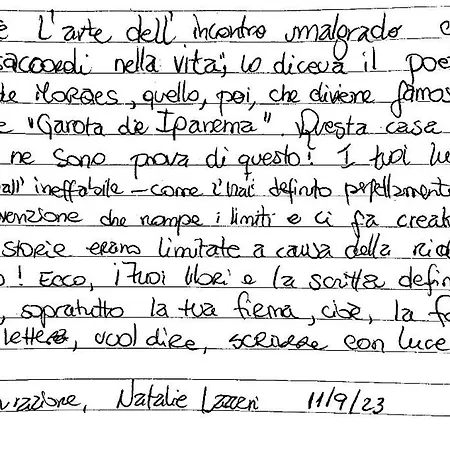 è L'arte dell'incontro malgrado
saccordi nella vita", lo diceva il poe
de Moraes, quello, poi, che diviene famos
e "Garota de Ipanema". Questa casa
ne sono prova di questo! I tuoi
all'ineffabile – come l'hai definito perfettamente
venzione che rompe i limiti e ci fa
storie erano limitate a causa della
o! Ecco, i tuoi libri e la scritta defin
, sopratutto la tua firma, cioè, la f
lettera, vuol dire, scrivere con luce
razione, Natalie Lazzeri 11/9/23